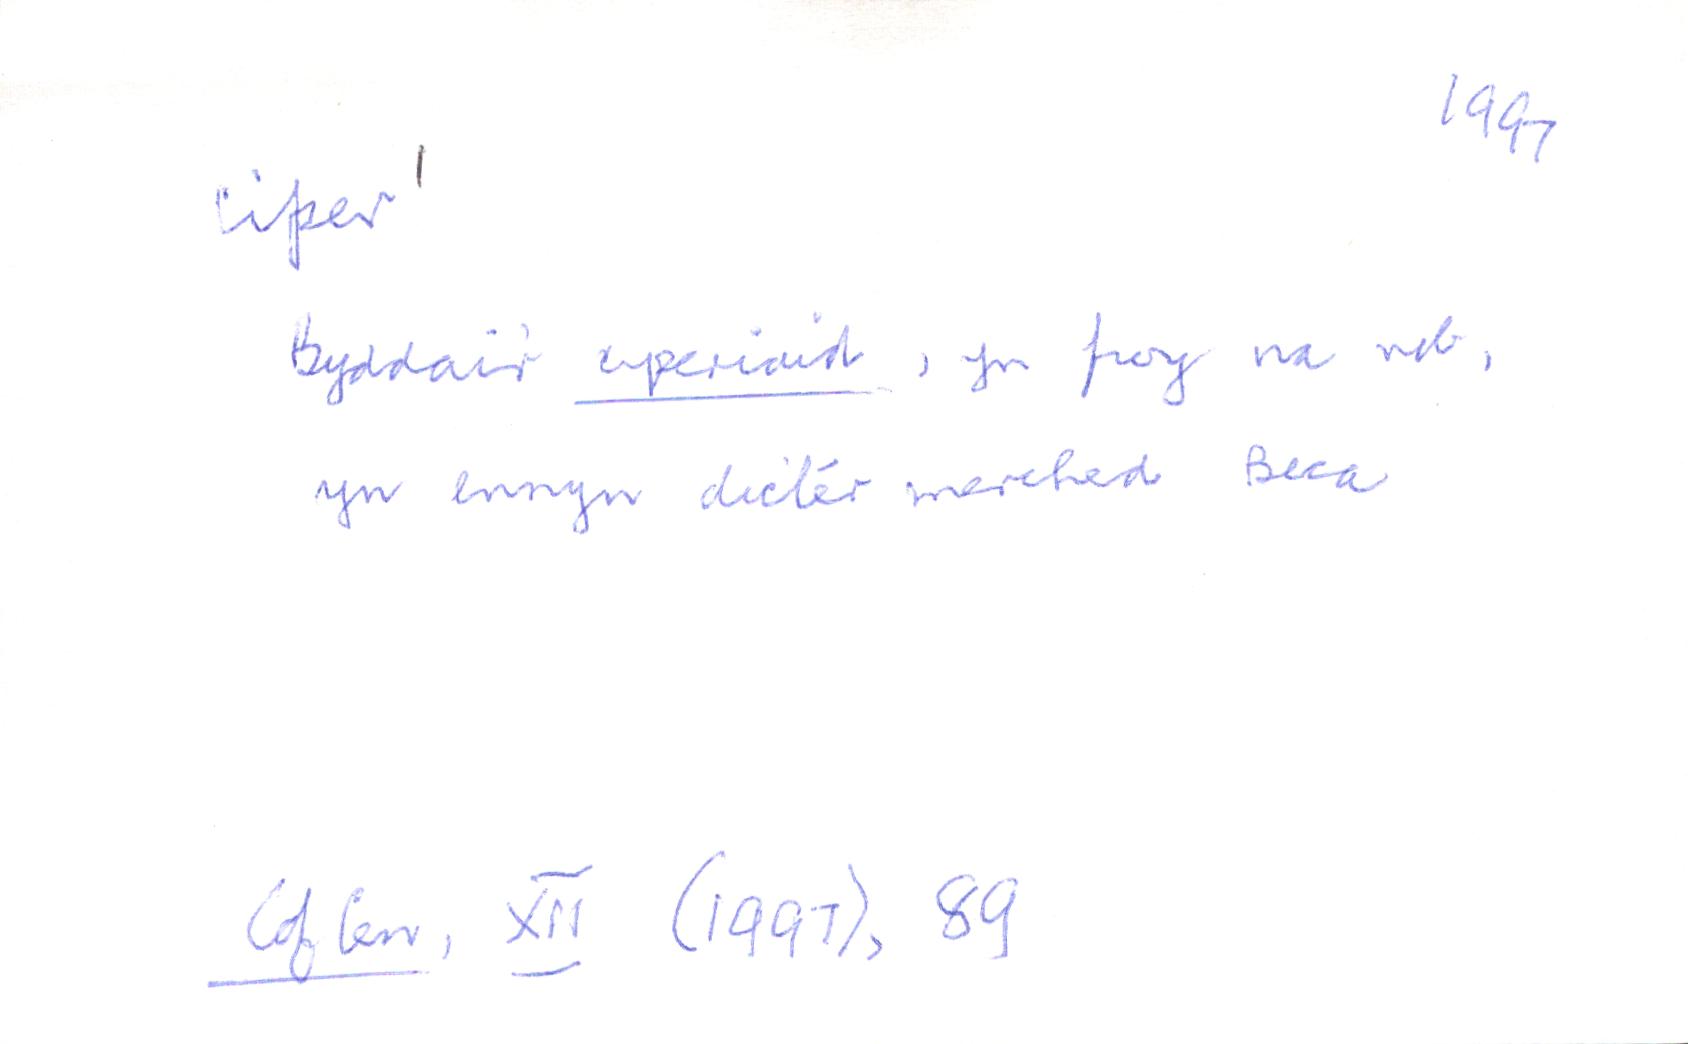 1997
ciper¹
Byddai'r ciperiaid, yn fwy na neb,
yn ennyn dictér merched Beca
Cof Cen, XII (1997), 89